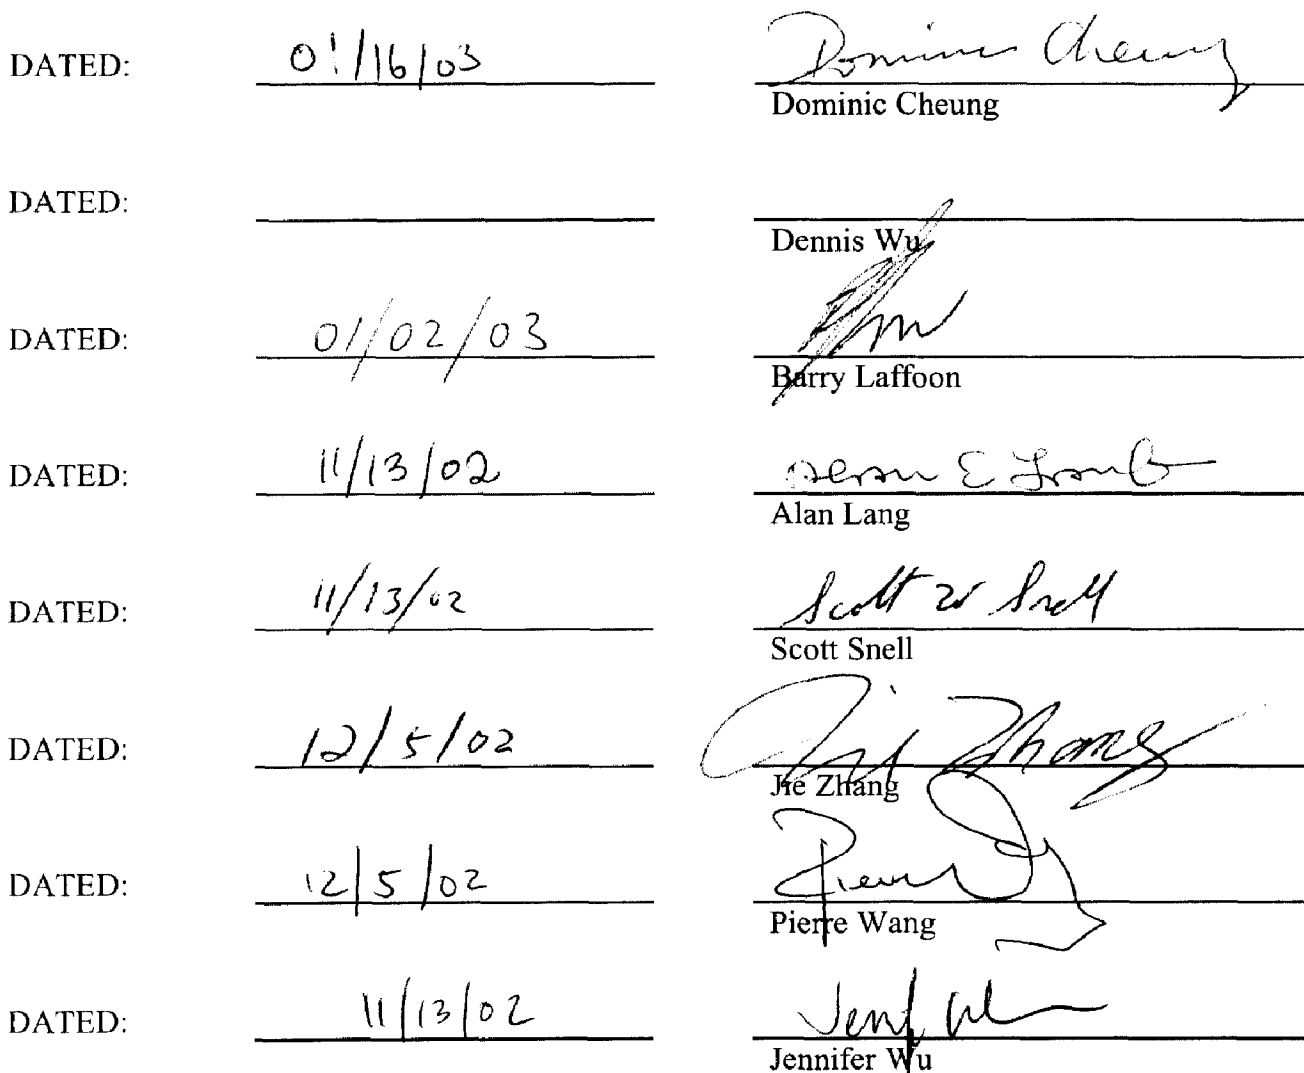 DATED: 01/16/03 Dominic Cheung
Dominic Cheung
DATED:
Dennis Wu
DATED: 01/02/03
Barry Laffoon
DATED: 11/13/02 Alan E Lang
Alan Lang
DATED: 11/13/02 Scott W Snell
Scott Snell
DATED: 12/5/02 Jie Zhang
Jie Zhang
DATED: 12/5/02 Pierre
Pierre Wang
DATED: 11/13/02
Jennifer Wu